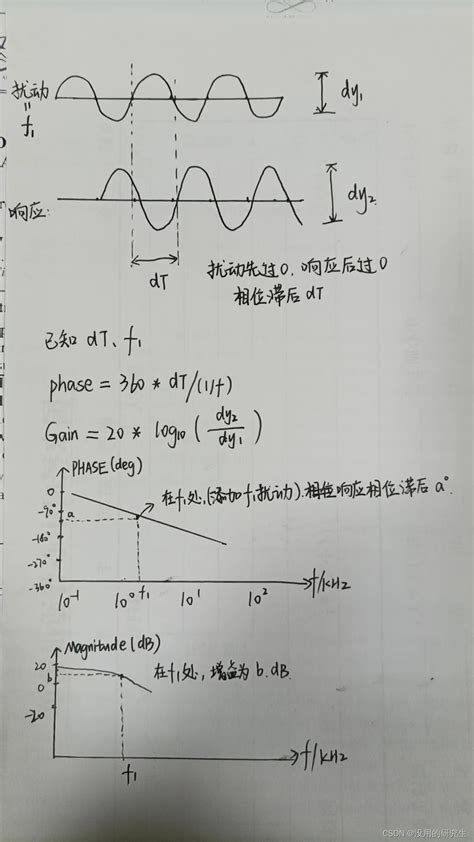 扰动
=
f₁
dy₁
响应:
dy₂
dT
扰动先过0, 响应后过0
相位滞后 dT
已知 dT、f₁
phase = 360 * dT/(1/f)
Gain = 20 * log₁₀ (dy₂/dy₁)
PHASE(deg)
0
-90°
a
-180°
-270°
-360°
在f₁处,(添加f₁扰动).响应相位滞后 a°
10⁻¹ 10⁰ f₁ 10¹ 10² f/kHz
Magnitude(dB)
20
b
0
-20
在f₁处, 增益为 b.dB.
f₁
f/kHz
CSDN @没用的研究生